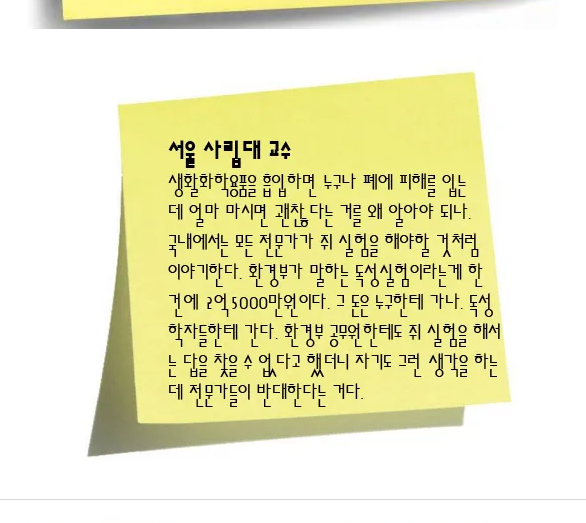 서울 사립대 교수
생활화학용품을 흡입하면 누구나 폐에 피해를 입는
데 얼마 마시면 괜찮다는 거를 왜 알아야 되나.
국내에서는 모든 전문가가 쥐 실험을 해야할 것처럼
이야기한다. 환경부가 말하는 독성실험이라는게 한
건에 2억5000만원이다. 그 돈은 누구한테 가나. 독성
학자들한테 간다. 환경부 공무원한테도 쥐 실험을 해서
는 답을 찾을 수 없다고 했더니 자기도 그런 생각을 하는
데 전문가들이 반대한다는 거다.